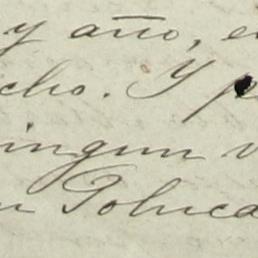 y año, e
cho. Y p
ingun v
n Polica